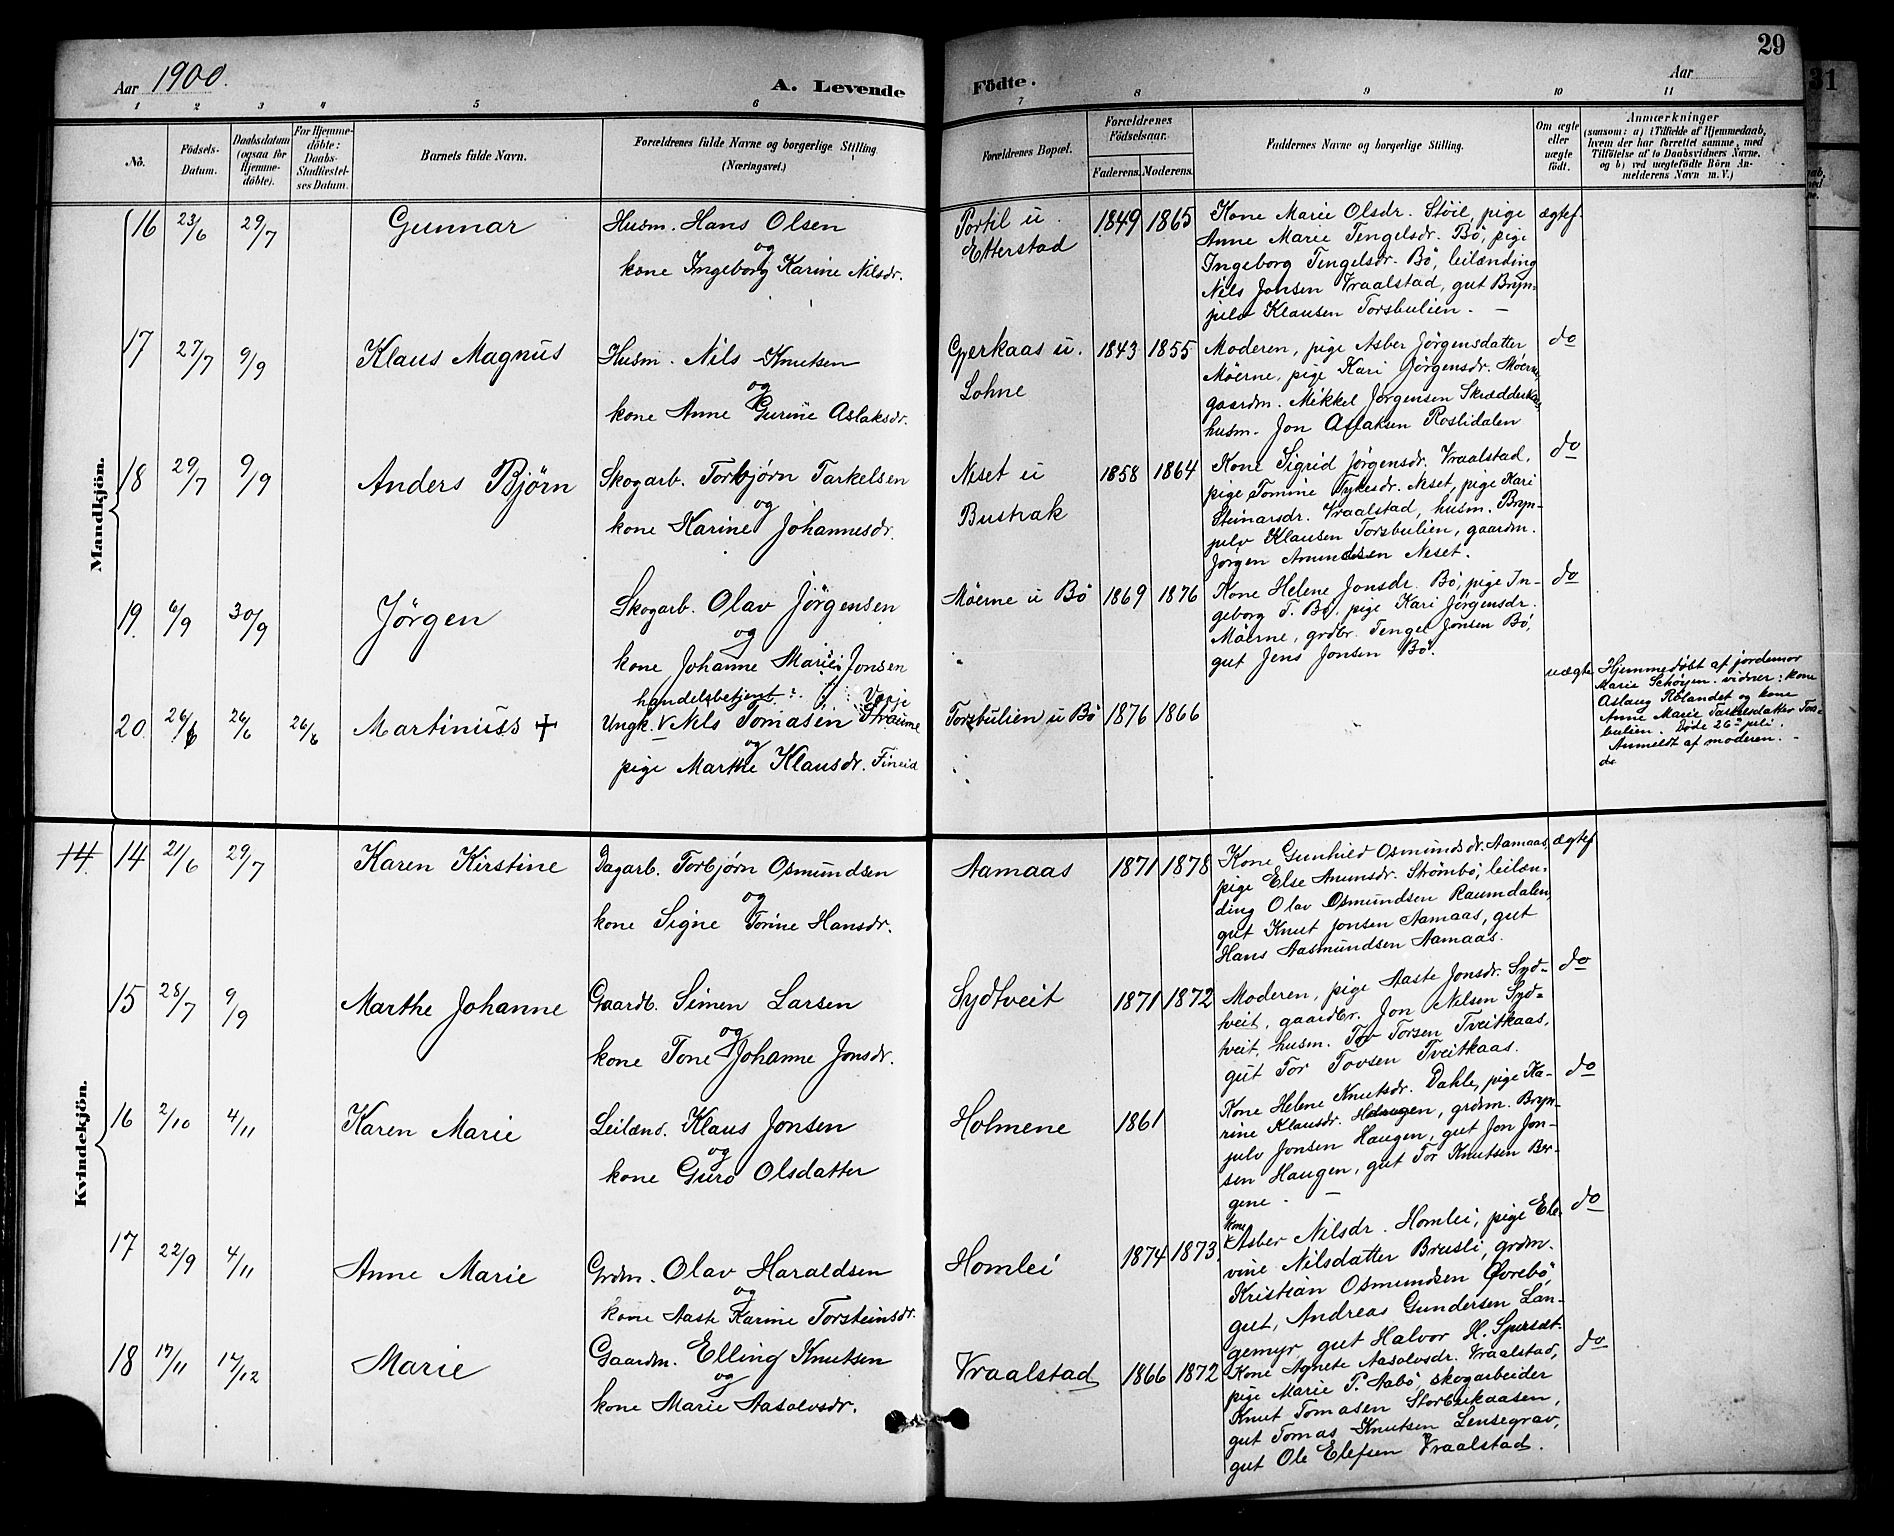 29
31
Aar 1900.
A. Levende
Födte.
Aar
1 2 3 4 5 6 7 8 9 10 11
No.
Födsels-
Datum.
Daabsdatum
(ogsaa for
Hjemme-
döbte).
For Hjemme-
döbte:
Daabs-
Stadfæstel-
ses Datum.
Barnets fulde Navn.
Forældrenes fulde Navne og borgerlige Stilling
(Næringsvei.)
Forældrenes Bopæl.
Forældrenes
Födselsaar.
Faderens. Moderens.
Faddernes Navne og borgerlige Stilling.
Om ægte
eller
uægte
født.
Anmærkninger
(saasom: a) i Tilfælde af Hjemmedaab,
hvem der har forrettet samme, med
Tilföielse af to Daabsvidners Navne,
og b) ved uægtefödte Börn An-
melderens Navn m. V.)
Mandkjön.
16 23/6 29/7 Gunnar
Husm. Hans Olsen
og
kone Ingeborg Karine Nilsdr.
Portil u.
Etterstad
1849 1865
Kone Marie Olsdr. Støil, pige
Anne Marie Tengelsdr. Bö, pige
Ingeborg Tengelsdr. Bö, leilænding
Nils Jonsen Vraalstad, gut Bryn-
julv Klausen Torsbulien. –
ægtef.
17 27/7 9/9 Klaus Magnus
Husm. Nils Knutsen
og
kone Anne Gurine Aslaksdr.
Gjerkaas u.
Lohne
1843 1855
Moderen, pige Asber Jörgensdatter
Möerne, pige Kari Jörgensdr. Möerne,
gaardm. Mikkel Jörgensen Skrædderkaas,
husm. Jon Aslaksen Roslidalen
do
18 29/7 9/9 Anders Bjørn
Skogarb. Torbjørn Tarkelsen
og
kone Karine Johannesdr.
Neset u
Bustrak
1858 1864
Kone Sigrid Jørgensdr. Vraalstad,
pige Tomine Tykesdr. Neset, pige Kari
Steinarsdr. Vraalstad, husm. Bryn-
julv Klausen Torsbulien, gaardm.
Jørgen Amundsen Neset.
do
19. 6/9 30/9 Jörgen
Skogarb. Olav Jörgensen
og
kone Johanne Marie Jonsen
Möerne u Bö
1869 1876
Kone Helene Jonsdr. Bö, pige In-
geborg T. Bö, pige Kari Jörgensdr.
Möerne, grdbr. Tengel Jonsen Bö,
gut Jens Jonsen Bö.
do
20. 26/6 26/6 26/6 Martinuss +
handelsbetjent
Ungk. Nils Tomasen Straume
og
pige Marthe Klausdr. Fineid
Torsbulien u Bö
1876 1866
uægte
Hjemmedøbt af jordemor
Marie Schøyen. vidner: kone
Aslaug Røländet og kone
Anne Marie Tarkelsdatter Tors-
bulien. Døde 26de juli.
Anmeldt af moderen. –
do
Kvindekjön.
14. 14 21/6 29/7 Karen Kirstine
Dagarb. Torbjørn Osmundsen
og
kone Signe Torine Hansdr.
Aamaas
1871 1878
Kone Gunhild Osmundsdr. Aamaas,
pige Else Anunsdr. Strömbö, leilæn-
ding Olav Osmundsen Raumdalen,
gut Knut Jonsen Aamaas, gut
Hans Aasmundsen Aamaas.
ægtef
15 28/7 9/9 Marthe Johanne
Gaardb. Simen Larsen
og
kone Tone Johanne Jonsdr.
Sydtveit
1871 1872
Moderen, pige Aaste Jonsdr. Syd-
tveit, gaardbr. Jon Nilsen Syd-
tveit, husm. Tov Torsen Tveitkaas,
gut Tor Tovsen Tveitkaas.
do
16 2/10 4/11 Karen Marie
Leilænd. Klaus Jonsen
og
kone Guro Olsdatter
Holmene
1861
Kone Helene Knutsdr. Dahle, pige Ka-
rine Klausdr. Haugen, grdm. Bryn-
julv Jonsen Haugen, gut Jon Jon-
sen Haugen, gut Tor Knutsen Ber-
gene. –
do
17 22/9 4/11 Anne Marie
Grdm. Olav Haraldsen
og
kone Aaste Karine Torsteinsdr.
Homlei
1874 1873.
kone
Asber Nilsdr. Homlei, pige Ele-
vine Nilsdatter Brusli, grdm.
Kristian Osmundsen Øvrebö,
gut, Andreas Gundersen Lan-
gemyr, gut Halvor H. Spersæt.
do
18 17/11 17/12 Marie
Gaardm. Elling Knutsen
og
kone Marie Aasolvsdr.
Vraalstad
1866 1872
Kone Agnete Aasolvsdr. Vraalstad,
pige Marie P. Aabö, skogarbeider
Knut Tomasen Storbukaasen,
gut Tomas Knutsen Lensegrav,
gut Ole Elefsen Vraalstad.
do